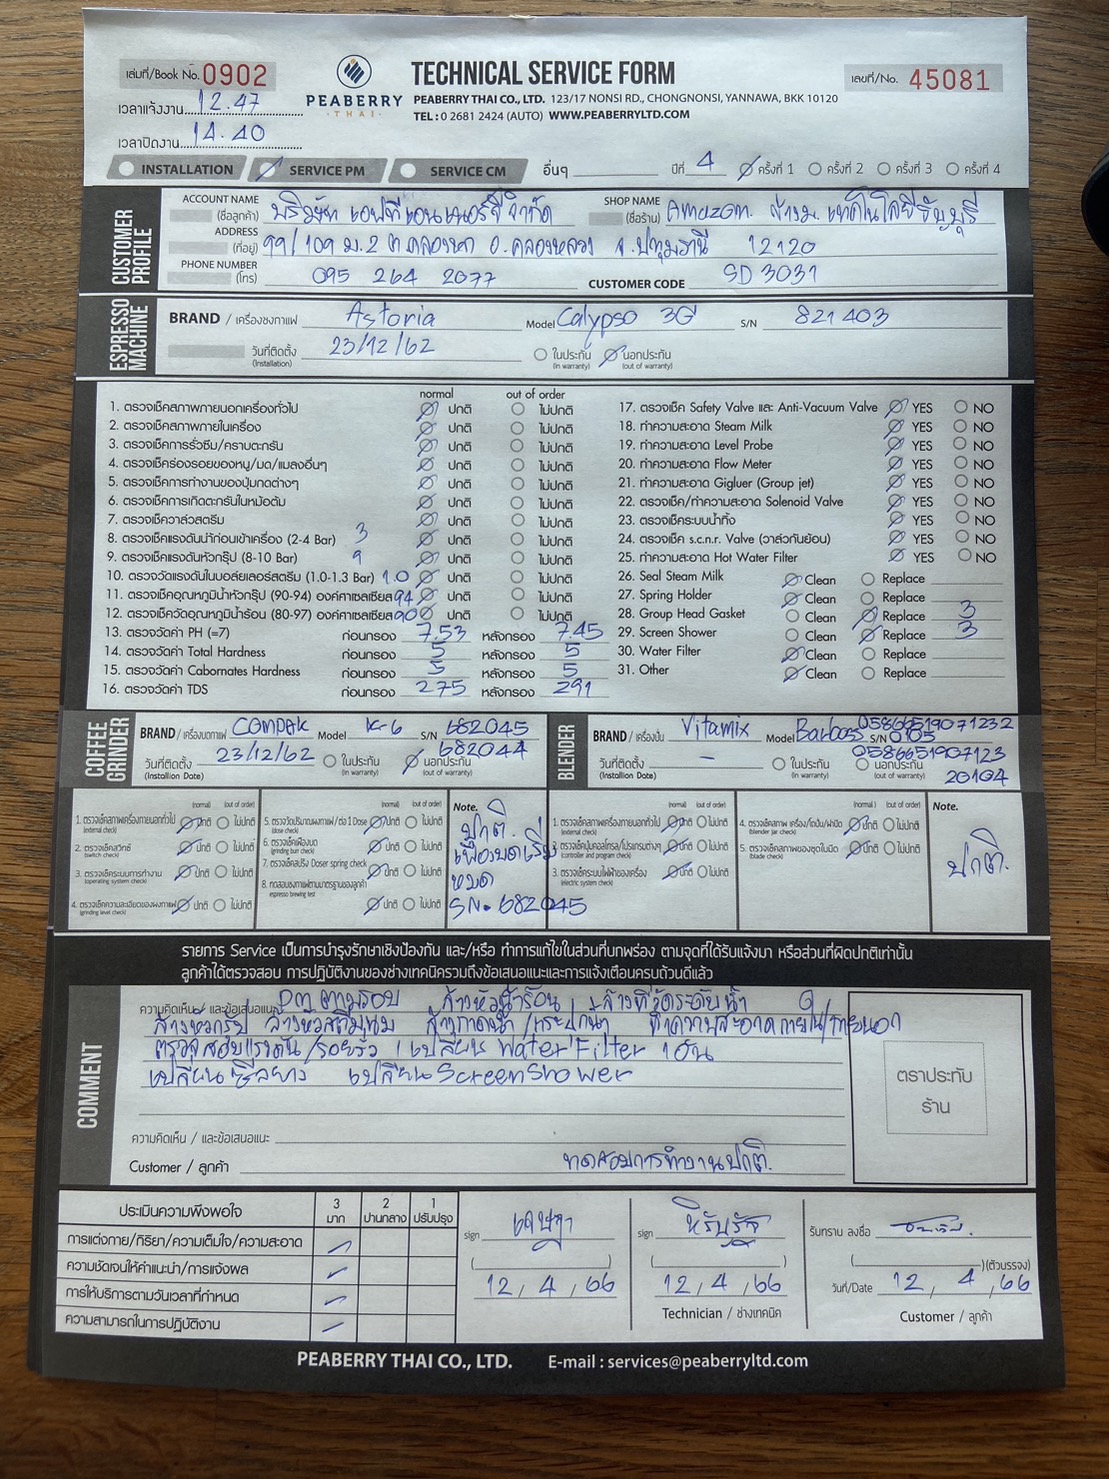 เล่มที่/Book No. 0902
PEABERRY
THAI
TECHNICAL SERVICE FORM
PEABERRY THAI CO., LTD. 123/17 NONSI RD., CHONGNONSI, YANNAWA, BKK 10120
TEL : 0 2681 2424 (AUTO) WWW.PEABERRYLTD.COM
เลขที่/No. 45081
เวลาแจ้งงาน 12.47
เวลาปิดงาน 14.40
INSTALLATION SERVICE PM SERVICE CM อื่นๆ ปีที่ 4 ครั้งที่ 1 ครั้งที่ 2 ครั้งที่ 3 ครั้งที่ 4
CUSTOMER PROFILE
ACCOUNT NAME (ชื่อลูกค้า) บริษัท เอฟทีเอนเนอร์จี้ จำกัด SHOP NAME (ชื่อร้าน) Amazon. ข้างม. เทคโนโลยีธัญบุรี
ADDRESS (ที่อยู่) 99/109 ม.2 ต.คลองหก อ.คลองหลวง จ.ปทุมธานี 12120
PHONE NUMBER (โทร) 095 264 2077 CUSTOMER CODE SD 3031
ESPRESSO MACHINE
BRAND / เครื่องชงกาแฟ Astoria Model Calypso 3G S/N 821403
วันที่ติดตั้ง (Installation) 23/12/62 ในประกัน (in warranty) นอกประกัน (out of warranty)
normal out of order
1. ตรวจเช็คสภาพภายนอกเครื่องทั่วไป ปกติ ไม่ปกติ
2. ตรวจเช็คสภาพภายในเครื่อง ปกติ ไม่ปกติ
3. ตรวจเช็คการรั่วซึม/คราบตะกรัน ปกติ ไม่ปกติ
4. ตรวจเช็คร่องรอยของหนู/มด/แมลงอื่นๆ ปกติ ไม่ปกติ
5. ตรวจเช็คการทำงานของปุ่มกดต่างๆ ปกติ ไม่ปกติ
6. ตรวจเช็คการเกิดตะกรันในหม้อต้ม ปกติ ไม่ปกติ
7. ตรวจเช็ควาล์วสตรีม ปกติ ไม่ปกติ
8. ตรวจเช็คแรงดันน้ำก่อนเข้าเครื่อง (2-4 Bar) 3 ปกติ ไม่ปกติ
9. ตรวจเช็คแรงดันหัวกรุ๊ป (8-10 Bar) 9 ปกติ ไม่ปกติ
10. ตรวจวัดแรงดันในบอล์ยเลอร์สตรีม (1.0-1.3 Bar) 1.0 ปกติ ไม่ปกติ
11. ตรวจเช็คอุณหภูมิน้ำหัวกรุ๊ป (90-94) องค์ศาเซลเซียส 94 ปกติ ไม่ปกติ
12. ตรวจเช็ควัดอุณหภูมิน้ำร้อน (80-97) องค์ศาเซลเซียส 90 ปกติ ไม่ปกติ
13. ตรวจวัดค่า PH (=7) ก่อนกรอง 7.53 หลังกรอง 7.45
14. ตรวจวัดค่า Total Hardness ก่อนกรอง 5 หลังกรอง 5
15. ตรวจวัดค่า Cabornates Hardness ก่อนกรอง 5 หลังกรอง 5
16. ตรวจวัดค่า TDS ก่อนกรอง 275 หลังกรอง 291
17. ตรวจเช็ค Safety Valve และ Anti-Vacuum Valve YES NO
18. ทำความสะอาด Steam Milk YES NO
19. ทำความสะอาด Level Probe YES NO
20. ทำความสะอาด Flow Meter YES NO
21. ทำความสะอาด Gigluer (Group jet) YES NO
22. ตรวจเช็ค/ทำความสะอาด Solenoid Valve YES NO
23. ตรวจเช็คระบบน้ำทิ้ง YES NO
24. ตรวจเช็ค s.c.n.r. Valve (วาล์วกันย้อน) YES NO
25. ทำความสะอาด Hot Water Filter YES NO
26. Seal Steam Milk Clean Replace
27. Spring Holder Clean Replace
28. Group Head Gasket Clean Replace 3
29. Screen Shower Clean Replace 3
30. Water Filter Clean Replace
31. Other Clean Replace
COFFEE GRINDER
BRAND / เครื่องบดกาแฟ COMPAK Model K-6 S/N 682045
682044
วันที่ติดตั้ง (Installation Date) 23/12/62 ในประกัน (in warranty) นอกประกัน (out of warranty)
BLENDER
BRAND / เครื่องปั่น Vitamix Model Barboss S/N 0586651907123205
0105
0586651907123
20104
วันที่ติดตั้ง (Installion Date) - ในประกัน (in warranty) นอกประกัน (out of warranty)
(normal) (out of order)
1. ตรวจเช็คสภาพเครื่องภายนอกทั่วไป (external check) ปกติ ไม่ปกติ
2. ตรวจเช็คสวิทช์ (switch check) ปกติ ไม่ปกติ
3. ตรวจเช็คระบบการทำงาน (operating system check) ปกติ ไม่ปกติ
4. ตรวจเช็คความละเอียดของผงกาแฟ (grinding level check) ปกติ ไม่ปกติ
5. ตรวจวัดปริมาณผงกาแฟ / ต่อ 1 Dose (dose check) ปกติ ไม่ปกติ
6. ตรวจเช็คเฟืองบด (grinding burr check) ปกติ ไม่ปกติ
7. ตรวจเช็คสปริง Doser spring check ปกติ ไม่ปกติ
8. ทดสอบชงกาแฟตามมาตรฐานของลูกค้า espresso brewing test ปกติ ไม่ปกติ
Note.
ปกติ.
เฟืองบดเริ่ม
หมด
SN. 682045
1. ตรวจเช็คสภาพเครื่องภายนอกทั่วไป (external check) ปกติ ไม่ปกติ
2. ตรวจเช็คปุ่มคอลโทรล/โปรแกรมต่างๆ (controller and program check) ปกติ ไม่ปกติ
3. ตรวจเช็คระบบไฟฟ้าของเครื่อง (electric system check) ปกติ ไม่ปกติ
4. ตรวจเช็คสภาพ เครื่อง/โถปั่น/ฝาปิด (blender jar check) ปกติ ไม่ปกติ
5. ตรวจเช็คสภาพของชุดใบมีด (blade check) ปกติ ไม่ปกติ
Note.
ปกติ.
รายการ Service เป็นการบำรุงรักษาเชิงป้องกัน และ/หรือ ทำการแก้ไขในส่วนที่บกพร่อง ตามจุดที่ได้รับแจ้งมา หรือส่วนที่ผิดปกติเท่านั้น
ลูกค้าได้ตรวจสอบ การปฏิบัติงานของช่างเทคนิครวมถึงข้อเสนอแนะและการแจ้งเตือนครบถ้วนดีแล้ว
COMMENT
ความคิดเห็น/ และข้อเสนอแนะ PM ตามรอบ ล้างหัวน้ำร้อน ล้างที่วัดระดับน้ำ
ล้างหัวกรุ๊ป ล้างหัวสตีมนม ล้างถาดน้ำ/กระปุกน้ำ ทำความสะอาดภายใน/ภายนอก
ตรวจสอบแรงดัน/รอยรั่ว เปลี่ยน Water Filter 1 อัน
เปลี่ยนซีลยาง เปลี่ยน Screen Shower
ตราประทับ
ร้าน
ความคิดเห็น / และข้อเสนอแนะ
Customer / ลูกค้า ทดสอบการทำงานปกติ.
ประเมินความพึงพอใจ 3 มาก 2 ปานกลาง 1 ปรับปรุง
การแต่งกาย/กิริยา/ความเต็มใจ/ความสะอาด
ความชัดเจนให้คำแนะนำ/การแจ้งผล
การให้บริการตามวันเวลาที่กำหนด
ความสามารถในการปฏิบัติงาน
sign เจษฎา
12 / 4 / 66
sign หิรัญรัจ
12 / 4 / 66
Technician / ช่างเทคนิค
รับทราบ ลงชื่อ
(ตัวบรรจง)
วันที่/Date 12 / 4 / 66
Customer / ลูกค้า
PEABERRY THAI CO., LTD. E-mail : services@peaberryltd.com